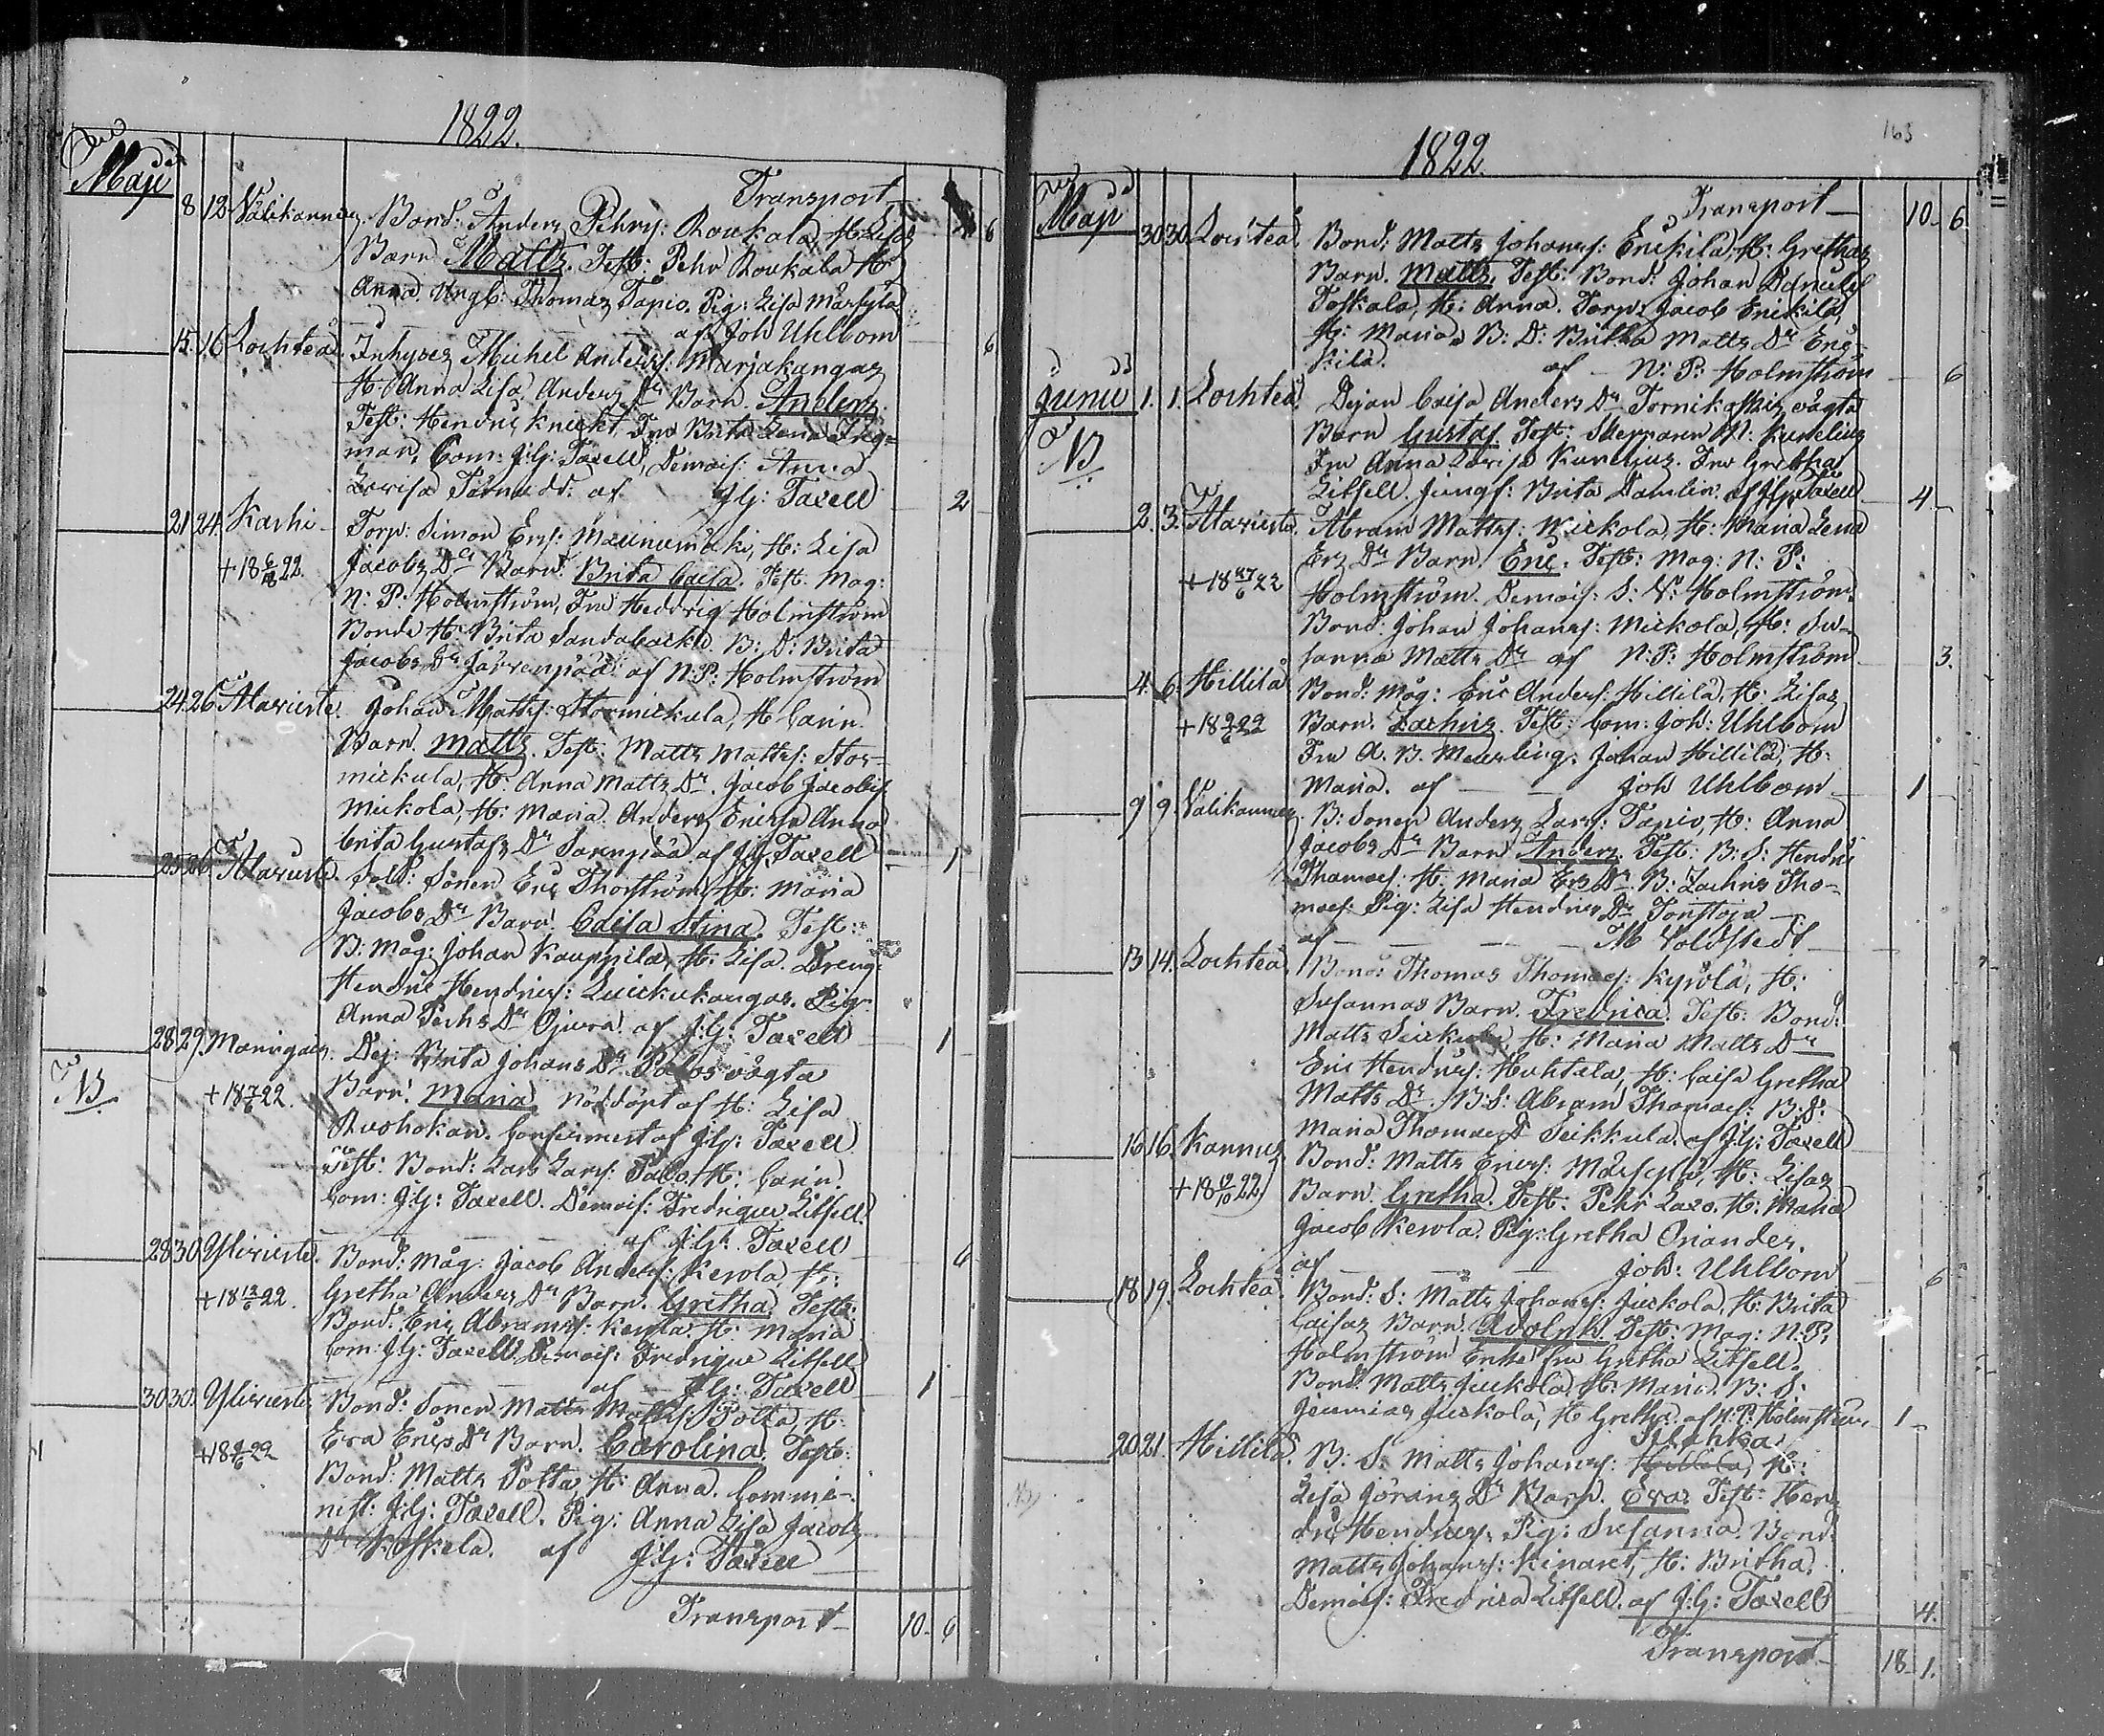 1822.
Maji
Transport
8 12 Välikannus Bond: Anders Pehrs: Roukala H: Lisas 6
Barn Matts. Test: Pehr Roukala H:
Anna. Ungk: Thomas Tapio. Pig: Lisa Märsylä
af Joh Uhlbom 6
15. 16 Lochteå. Inhyses Michel Anders: Marjakangas
H: Anna Lisa Anders Dr Barn. Anders.
Test: Hendric Knecht, Fru Brita Lena
man, Com: J:G: Taxell, Demois: Anna
Lovisa af J:G: Taxell 2
21 24. Karhi Torp: Simon Ers: H: Lisa
+ 18 6/18 22. Jacobs Dr Barn: Brita Caisa. Test: Mag:
N: P: Holmström, Fru Hedvig Holmström
Bonde H: Brita Sandabacka. B: D: Brita
Jacobs Dr Järvenpää: af N: P: Holmström
24 26 Alavieste. Johan Matts: Stormickula, H Carin.
Barn. Matts. Test: Matts Matts: Stor-
mickula, H: Anna Matts Dr. Jacob Jacobs
Mickola, H: Maria. Anders Anna
brita Gustafs Dr af J:G: Taxell 1
25 26. Alavieste. Sold: Sonen Eric Thorström, H: Maria
Jacobs Dr Barn. Caisa Stina. Test:
B: Måg: Johan Kauppila, H: Lisa. Dreng:
Hendric Hendrics: Pig:
Anna Pehrs Dr Ojura. af J:G: Taxell 1
28 29. Dej: Brita Johans Dr Palos oägta
NB + 18 7/6 22. Barn. Maria nöddöpt af H: Lisa
Ruohokan. Confirmert af J:G: Taxell
Test: Bond: Lars Lars: Palo. H: Carin.
Com: J:G: Taxell. Demois: Fredrique Litsell.
af J:G: Taxell
28 30 Ylivieste. Bond: Måg: Jacob Anders: Kerola, H: 6
+ 18 12/6 22. Gretha Anders Dr Barn. Gretha. Test:
Bond: Eric Abrams: Kerola. H: Maria
Com: J:G: Taxell. Demois: Fredrique Litsell
af J:G: Taxell 1
30 30. Ylivieste Bond: Sonen Matts Matts: Potta, H:
+ 18 22 Eva Erics Dr Barn. Carolina. Test:
Bond: Matts Potta, H: Anna. Commi-
nist: J:G: Taxell. Pig: Anna Lisa Jacobs
Dr Koskela. af J:G: Taxell
Transport 10. 6
163
1822.
Maji
Transport 10. 6.
30 30. Lochteå. Bond: Matts Johans: Erickila, H: Grethas
Barn. Matts. Test: Bond: Johan
Toskala, H: Anna. Torp: Jacob Erickila,
H: Maria. B: D: Britha Matts Dr Eric-
kila. af N: P: Holmström 6
Junii 1. 1. Lochteå. Dejan Caisa Anders Dr oägta
NB Barn Gustaf. Test: Skepparen Kurelius
Fru Anna Lovisa Kurelius. Fru Gretha
Litsell. Jungf: Brita Damlin. af J:G: Taxell 4
2. 3. Alavieste. Abram Matts: Mickola, H: Maria Lena
Ers Dr Barn. Eric. Test: Mag: N: P:
+ 18 27/6 22 Holmström. Demois: S: Holmström.
Bond: Johan Johans: Mickola, H: Su-
sanna Matts Dr af N: P: Holmström 3.
4. 6. Hillilä Bond: måg: Eric Anders: Hillilä, H: Lisas
+ 18 9/6 22 Barn. Zachris. Test: Com: Joh: Uhlbom
Fru A. B. Johan Hillilä, H:
Maria. af Joh Uhlbom 1
9 9. Välikannus. B: Sonen Anders Lars: Tapio, H: Anna
Jacobs Dr Barn. Anders. Test: B: S: Hendric
Thomas: H: Maria Ers Dr. B: Zachris Tho-
mas: Pig: Lisa Hendrics Dr
af M Toldstedt
13 14. Lochteå Bond: Thomas Thomas: H:
Susannas Barn. Fredrica. Test: Bond:
Matts H: Maria Matts Dr
Eric Hendrics: Huhtala, H: Caisa Gretha
Matts Dr. B: S: Abram Thomas: B: D:
Maria Thomas D Seikkula. af J:G: Taxell
16 16. Kannus Bond: Matts Erics: Märsylä, H: Lisas
+ 18 12/10 22 Barn. Gretha. Test: Pehr Laxo. H: Maria
Jacob Kerola. Pig: Gretha Oriander.
af Joh: Uhlbom 6
18 19. Lochteå. Bond: S: Matts Johans: Juckola, H: Brita
Caisas Barn. Adolph. Test: Mag: N: P:
Holmström Enke fru Gretha Litsell.
Bond: Matts Juckola, H: Maria. B: S:
Jeremias Juckola, H Gretha. af N: P: Holmström 1
20 21. Hillilä. B: S: Matts Johans: H:
Lisa Jörans Dr Barn. Eva. Test: Hen-
dric Hendrics. Pig: Susanna. Bond:
Matts Johans: Kinaret, H: Britha.
Demois: Fredrica Litsell. af J:G: Taxell 4.
Transport 18. 1.